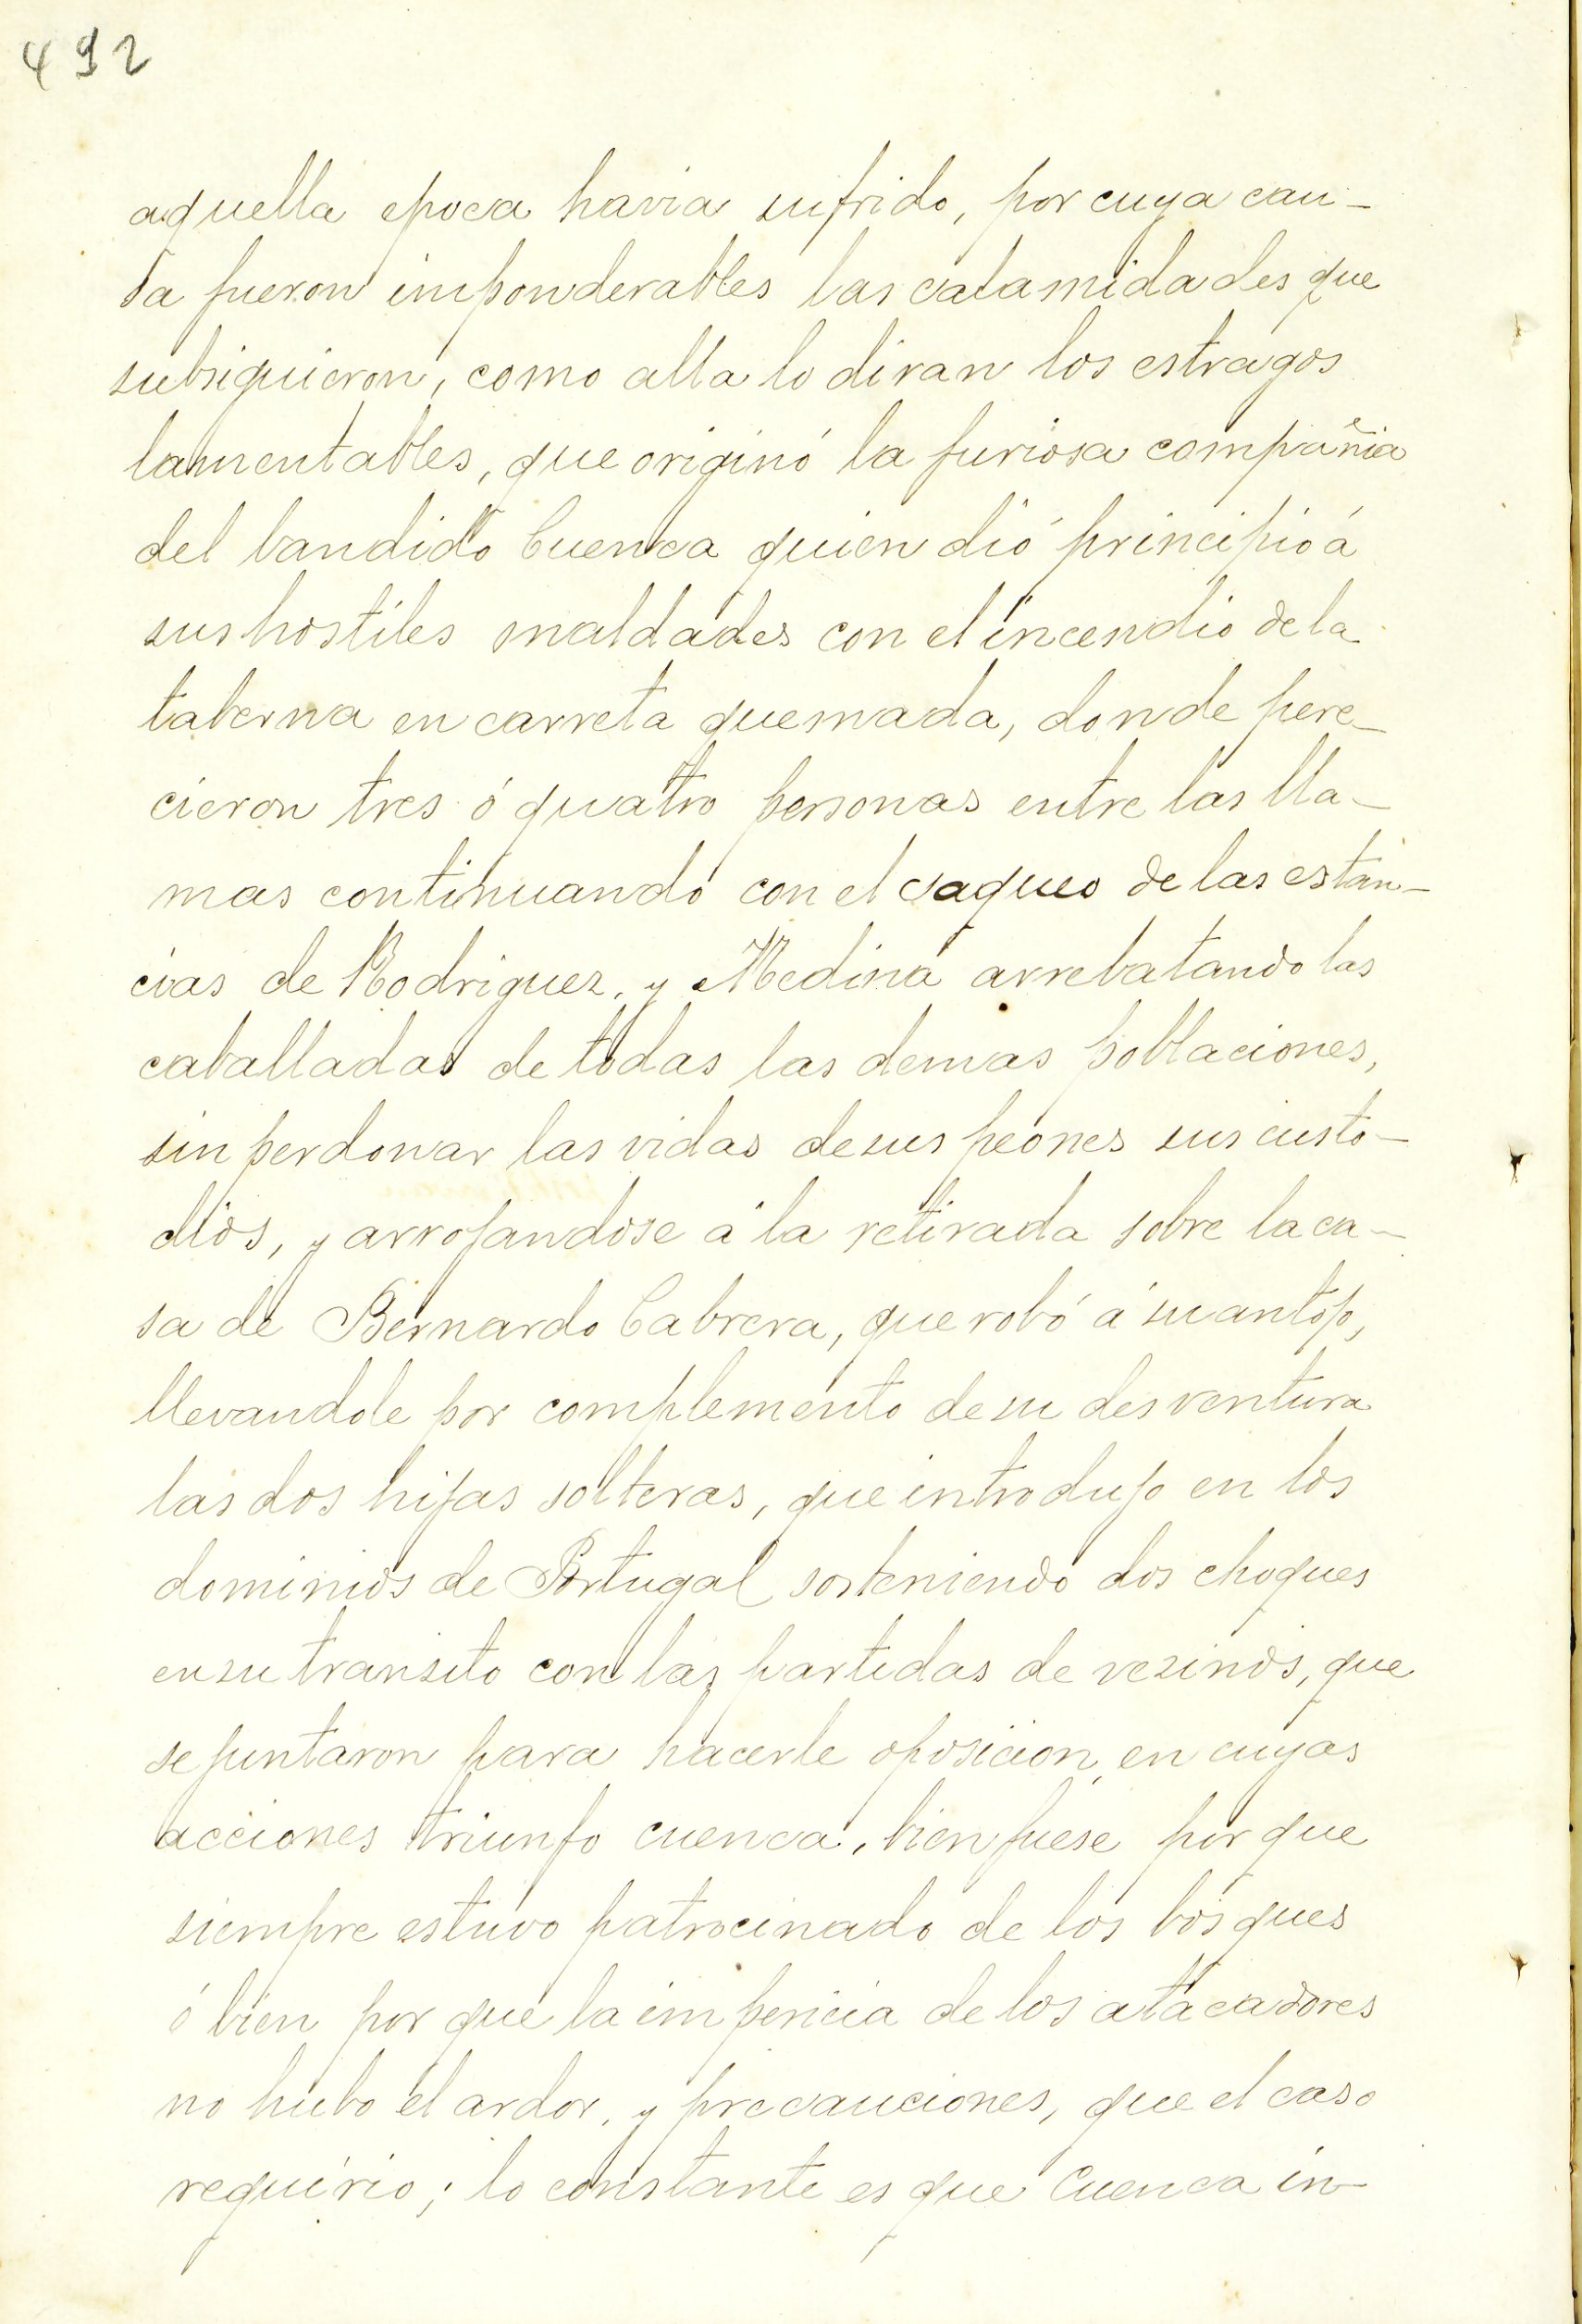 492
aquella epoca havia sufrido, por cuya cau-
sa fueron imponderables las calamidades que
subsiguieron, como alla lo diran los estragos
lamentables, que originó la furiosa compañia
del bandido Cuenca quien dió principio á
sus hostiles maldades con el incendio de la
taberna en carreta quemada, donde pere-
cieron tres ó quatro personas entre las lla-
mas continuando con el saqueo de las estan-
cias de Rodriguez, y Medina arrebatando las
caballadas de todas las demas poblaciones,
sin perdonar las vidas de sus peones sus custo-
dios, y arrojandose á la retirada sobre la ca-
sa de Bernardo Cabrera, que robó á su antojo,
llevandole por complemento de su desventura
las dos hijas solteras, que introdujo en los
dominios de Portugal sosteniendo dos choques
en su transito con las partidas de vezinos, que
se juntaron para hacerle oposicion, en cuyas
acciones triunfo cuenca, bien fuese por que
siempre estuvo patrocinado de los bosques
ó bien por que la impericia de los atacadores
no hubo el ardor, y precauciones, que el caso
requirio; lo constante es que Cuenca in-